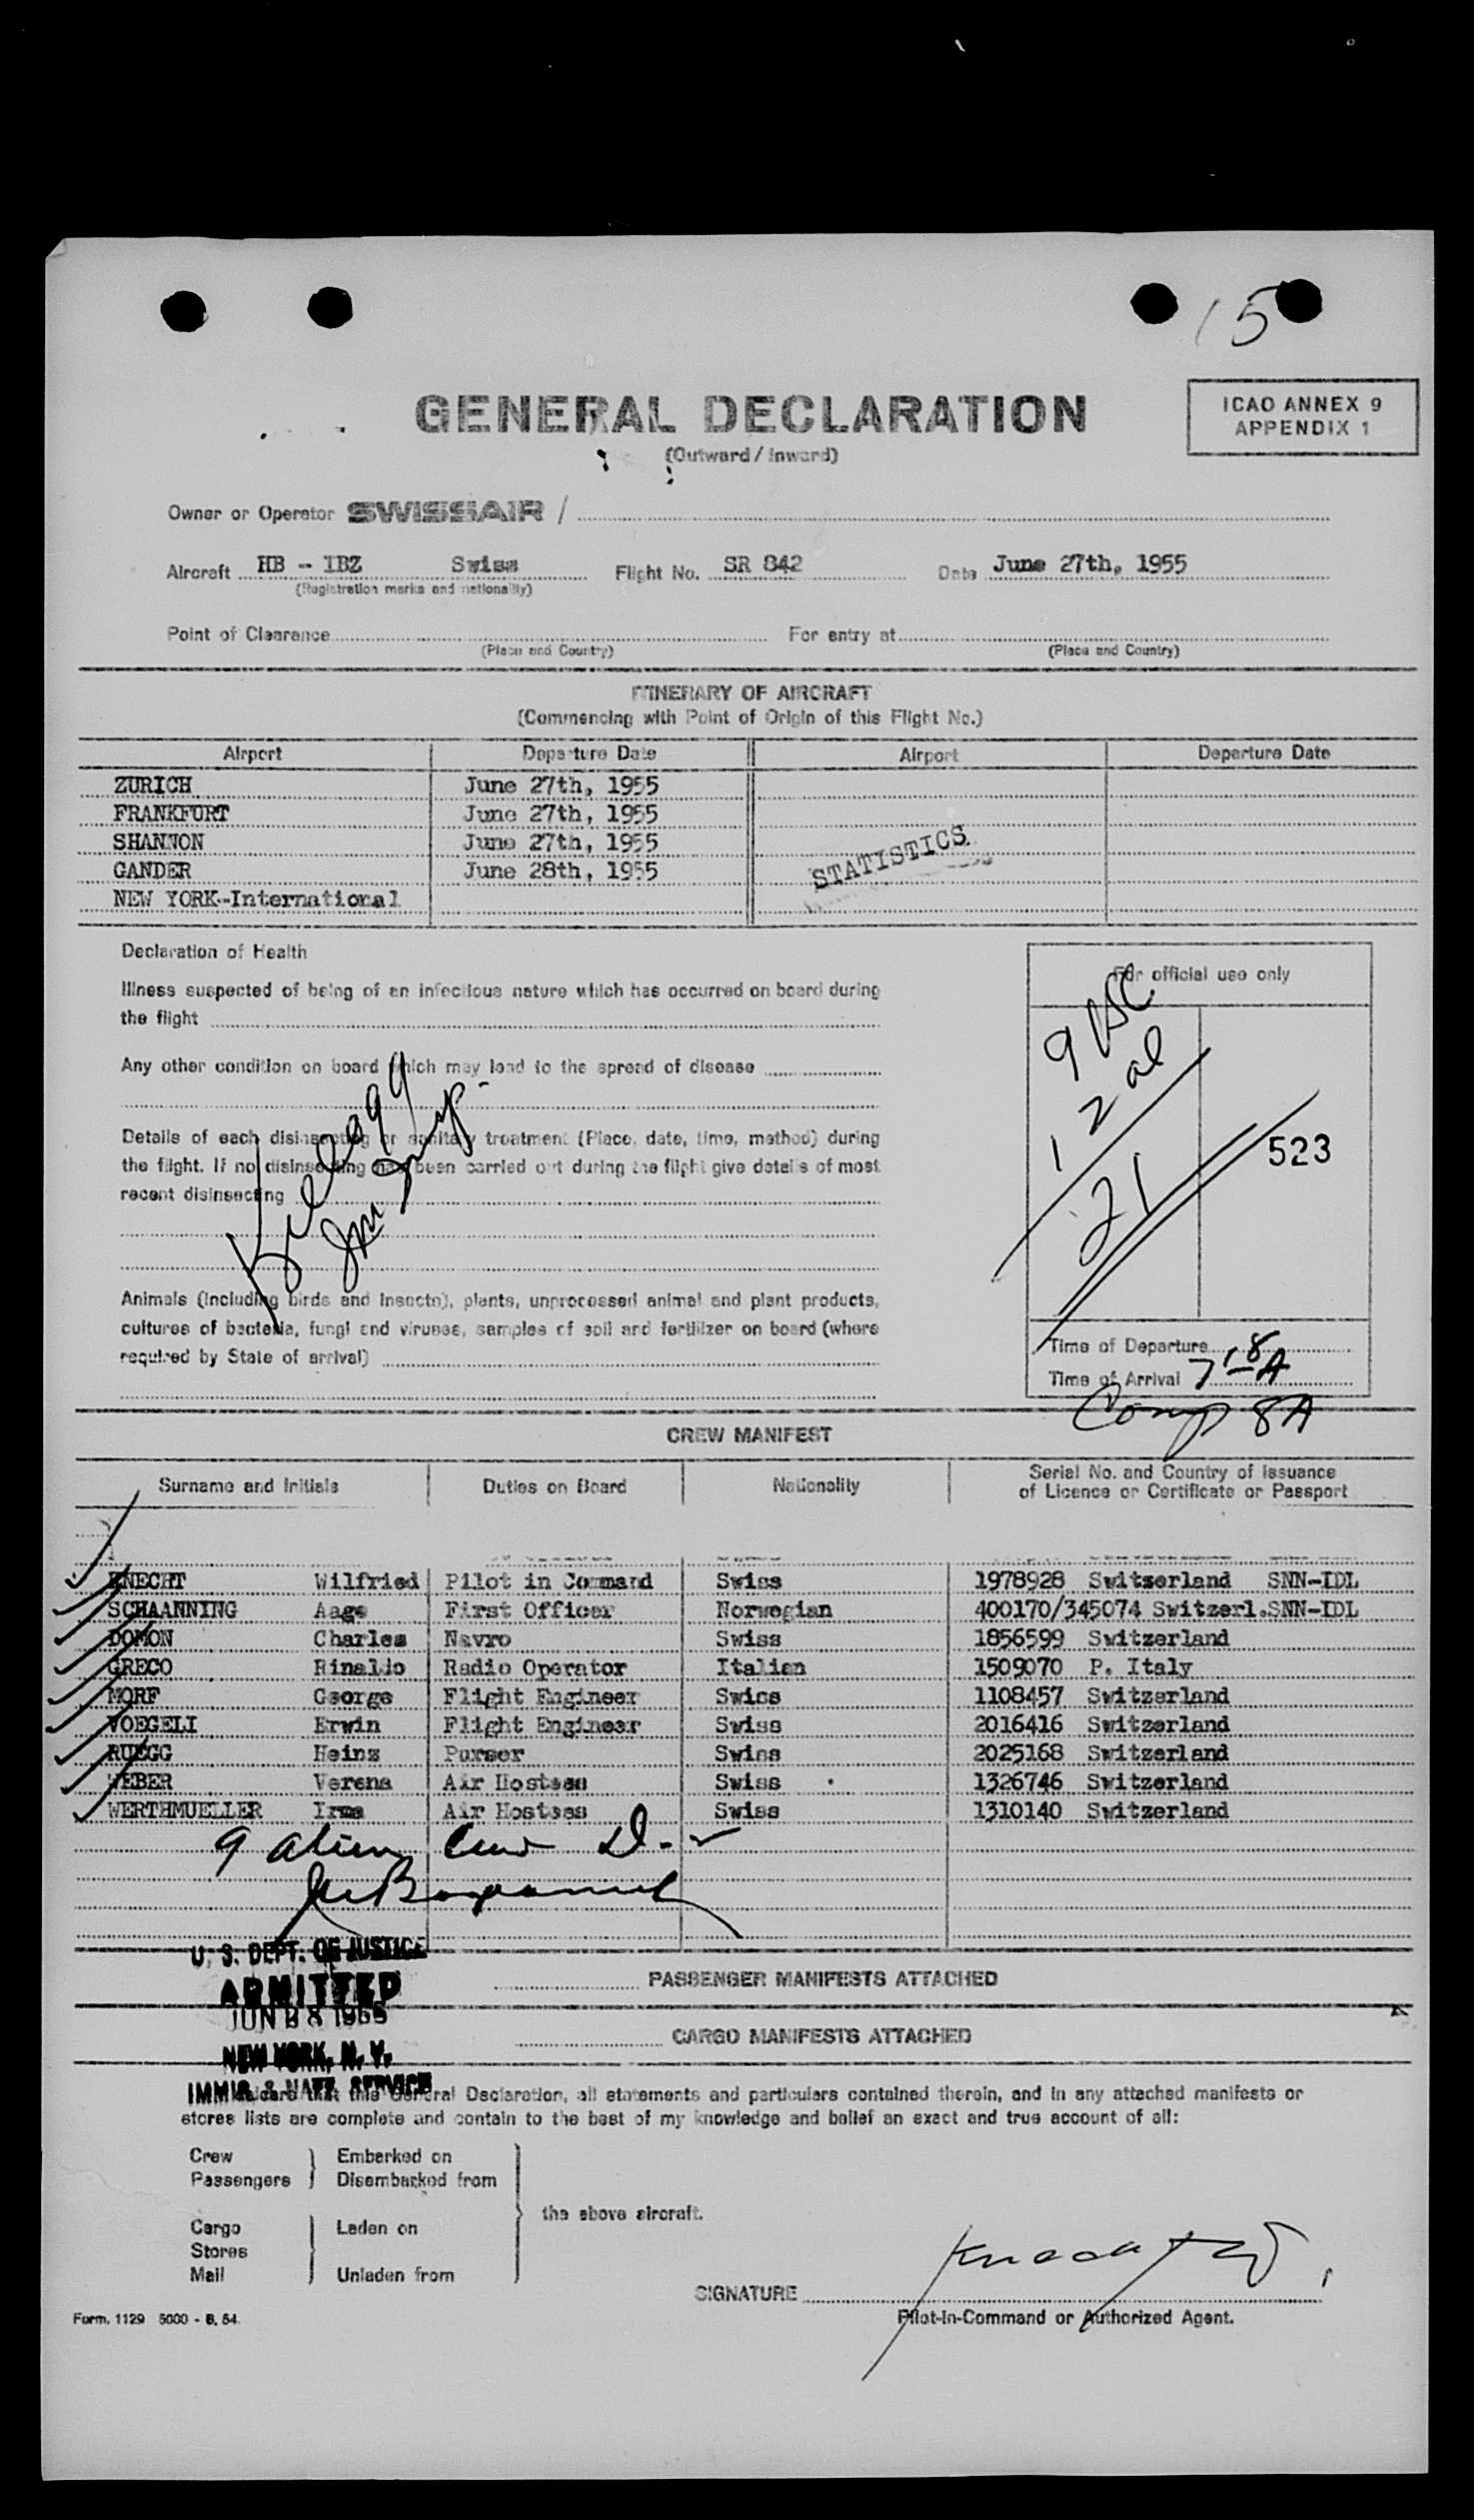 15
GENERAL DECLARATION
(Outward / Inward)
ICAO ANNEX 9
APPENDIX 1
Owner or Operator SWISSAIR /
Aircraft HB - IBZ Swiss Flight No. SR 842 Date June 27th, 1955
(Registration marks and nationality)
Point of Clearance For entry at
(Place and Country) (Place and Country)
ITINERARY OF AIRCRAFT
(Commencing with Point of Origin of this Flight No.)
Airport Departure Date Airport Departure Date
ZURICH June 27th, 1955
FRANKFURT June 27th, 1955
SHANNON June 27th, 1955
GANDER June 28th, 1955
NEW YORK-International
STATISTICS
Declaration of Health
Illness suspected of being of an infectious nature which has occurred on board during
the flight
Any other condition on board which may lead to the spread of disease
Details of each disinsecting or sanitary treatment (Place, date, time, method) during
the flight. If no disinsecting has been carried out during the flight give details of most
recent disinsecting
Kellogg
Animals (including birds and insects), plants, unprocessed animal and plant products,
cultures of bacteria, fungi and viruses, samples of soil and fertilizer on board (where
required by State of arrival)
For official use only
9 USC
12 al
21
523
Time of Departure
Time of Arrival 7 18 A
Comp 8 A
CREW MANIFEST
Surname and Initials Duties on Board Nationality Serial No. and Country of Issuance
of Licence or Certificate or Passport
KNECHT Wilfried Pilot in Command Swiss 1978928 Switserland SNN-IDL
SCHAANNING Aage First Officer Norwegian 400170/345074 Switzerl.SNN-IDL
DOMON Charles Navro Swiss 1856599 Switzerland
GRECO Rinaldo Radio Operator Italian 1509070 P. Italy
MORF George Flight Engineer Swiss 1108457 Switzerland
VOEGELI Erwin Flight Engineer Swiss 2016416 Switzerland
RUEGG Heinz Purser Swiss 2025168 Switzerland
WEBER Verena Air Hostess Swiss 1326746 Switzerland
WERTHMUELLER Irma Air Hostess Swiss 1310140 Switzerland
9 alien Crew D-
U. S. DEPT. OF JUSTICE
ADMITTED
JUN 28 1955
NEW YORK, N. Y.
IMMIG. & NATZ. SERVICE
PASSENGER MANIFESTS ATTACHED
CARGO MANIFESTS ATTACHED
declare that this General Declaration, all statements and particulars contained therein, and in any attached manifests or
stores lists are complete and contain to the best of my knowledge and belief an exact and true account of all:
Crew Embarked on
Passengers Disembarked from
the above aircraft.
Cargo Laden on
Stores
Mail Unladen from
SIGNATURE Knecht W.
Pilot-in-Command or Authorized Agent.
Form. 1129 5000 - 8. 54